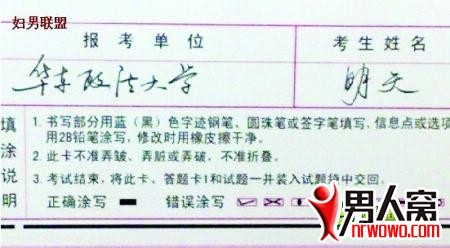 妇男联盟
报考单位 考生姓名
华东政法大学
填涂说明
1. 书写部分用蓝（黑）色字迹钢笔、圆珠笔或签字笔填写，信息点或选项
用2B铅笔涂写，修改时用橡皮擦干净。
2. 此卡不准弄皱、弄脏或弄破、不准折叠。
3. 考试结束，将此卡、答题卡1和试题一并装入试题袋中交回。
正确涂写 错误涂写
男人窝
nrwowo.com